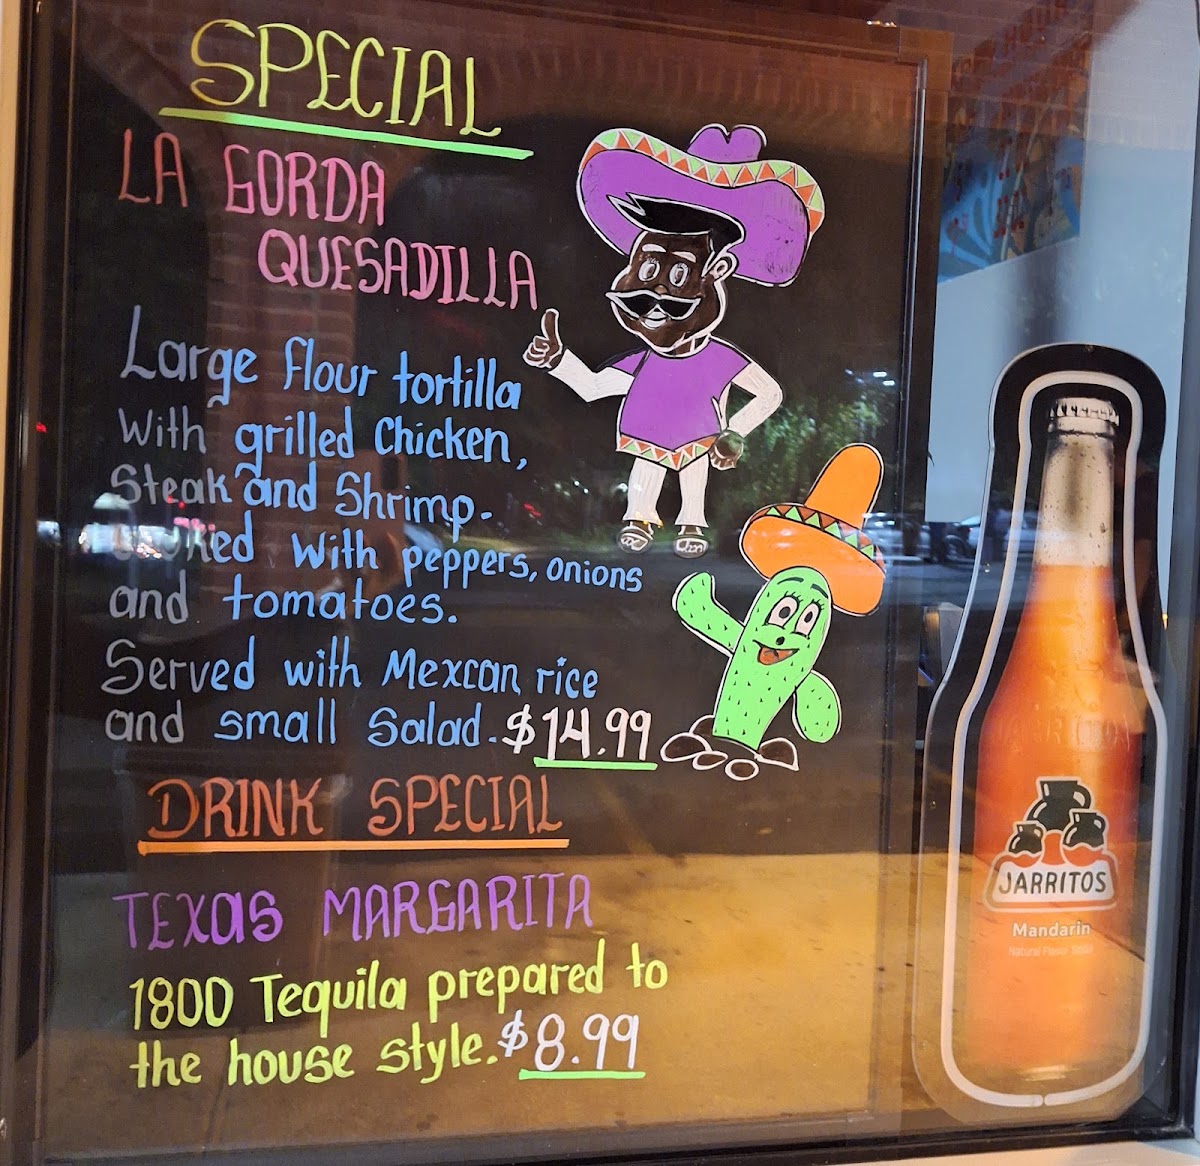 SPECIAL
LA GORDA
QUESADILLA
Large flour tortilla
with grilled Chicken,
Steak and Shrimp.
with peppers, onions
and tomatoes.
Served with Mexcan rice
and small Salad. $14.99
DRINK SPECIAL
TEXAS MARGARITA
1800 Tequila prepared to
the house style. $8.99
JARRITOS
Mandarin
Natural Flavor Soda